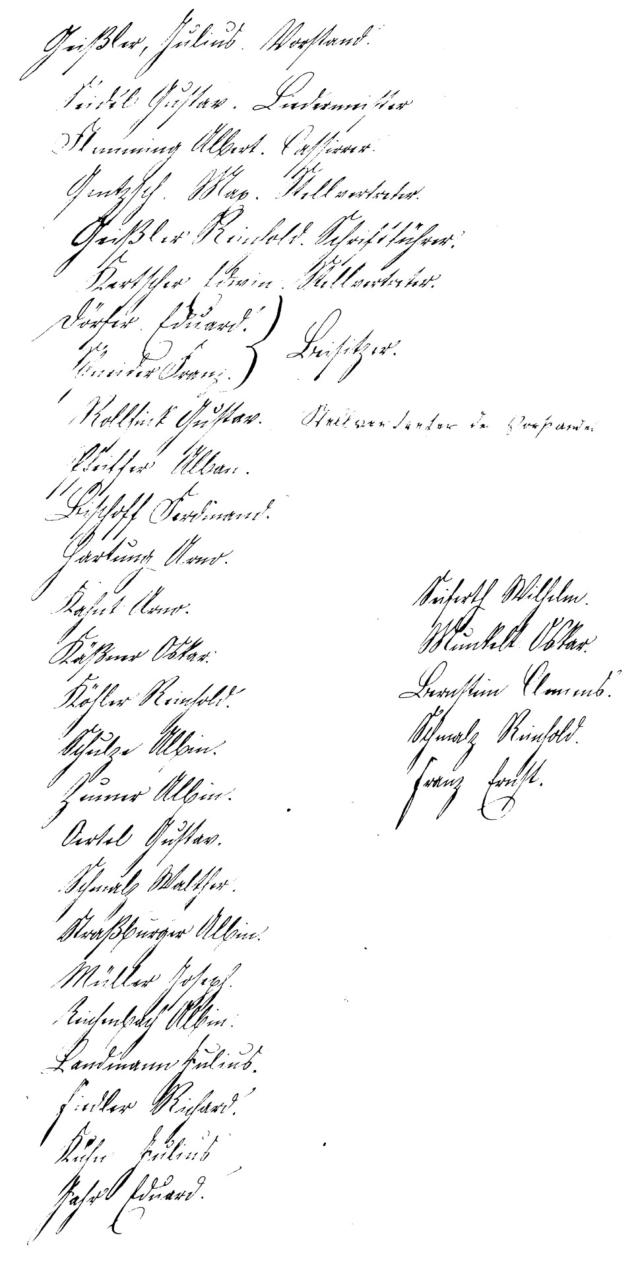 Geißler, Julius. Vorstand.
Seidel Gustav. Liedermeister
Flemming Albert. Cassirer.
Gentzsch. Max. Stellvertreter.
Geißler Reinhold. Schriftführer.
Kertscher Edwin. Stellvertreter.
Dörfer. Eduard.
Schneider Franz. Beisitzer.
Gustav. Stellvertreter de Vorstandes
Pfeiffer Alban.
Bischoff Ferdinand.
Hartung Arno.
Kahnt Arno.
Käßner Oskar.
Köhler Reinhold.
Schulze Albin.
Zeuner Albin.
Oertel Gustav.
Schmalz Walther.
Straßburger Albin.
Müller Joseph.
Reichenbach Albin.
Landmann Julius.
Fiedler Richard.
Kühn Julius
Jahr Eduard.
Seiferth Wilhelm.
Munkelt Oskar.
Bernstein Clemens.
Schmalz Reinhold.
Franz Ernst.